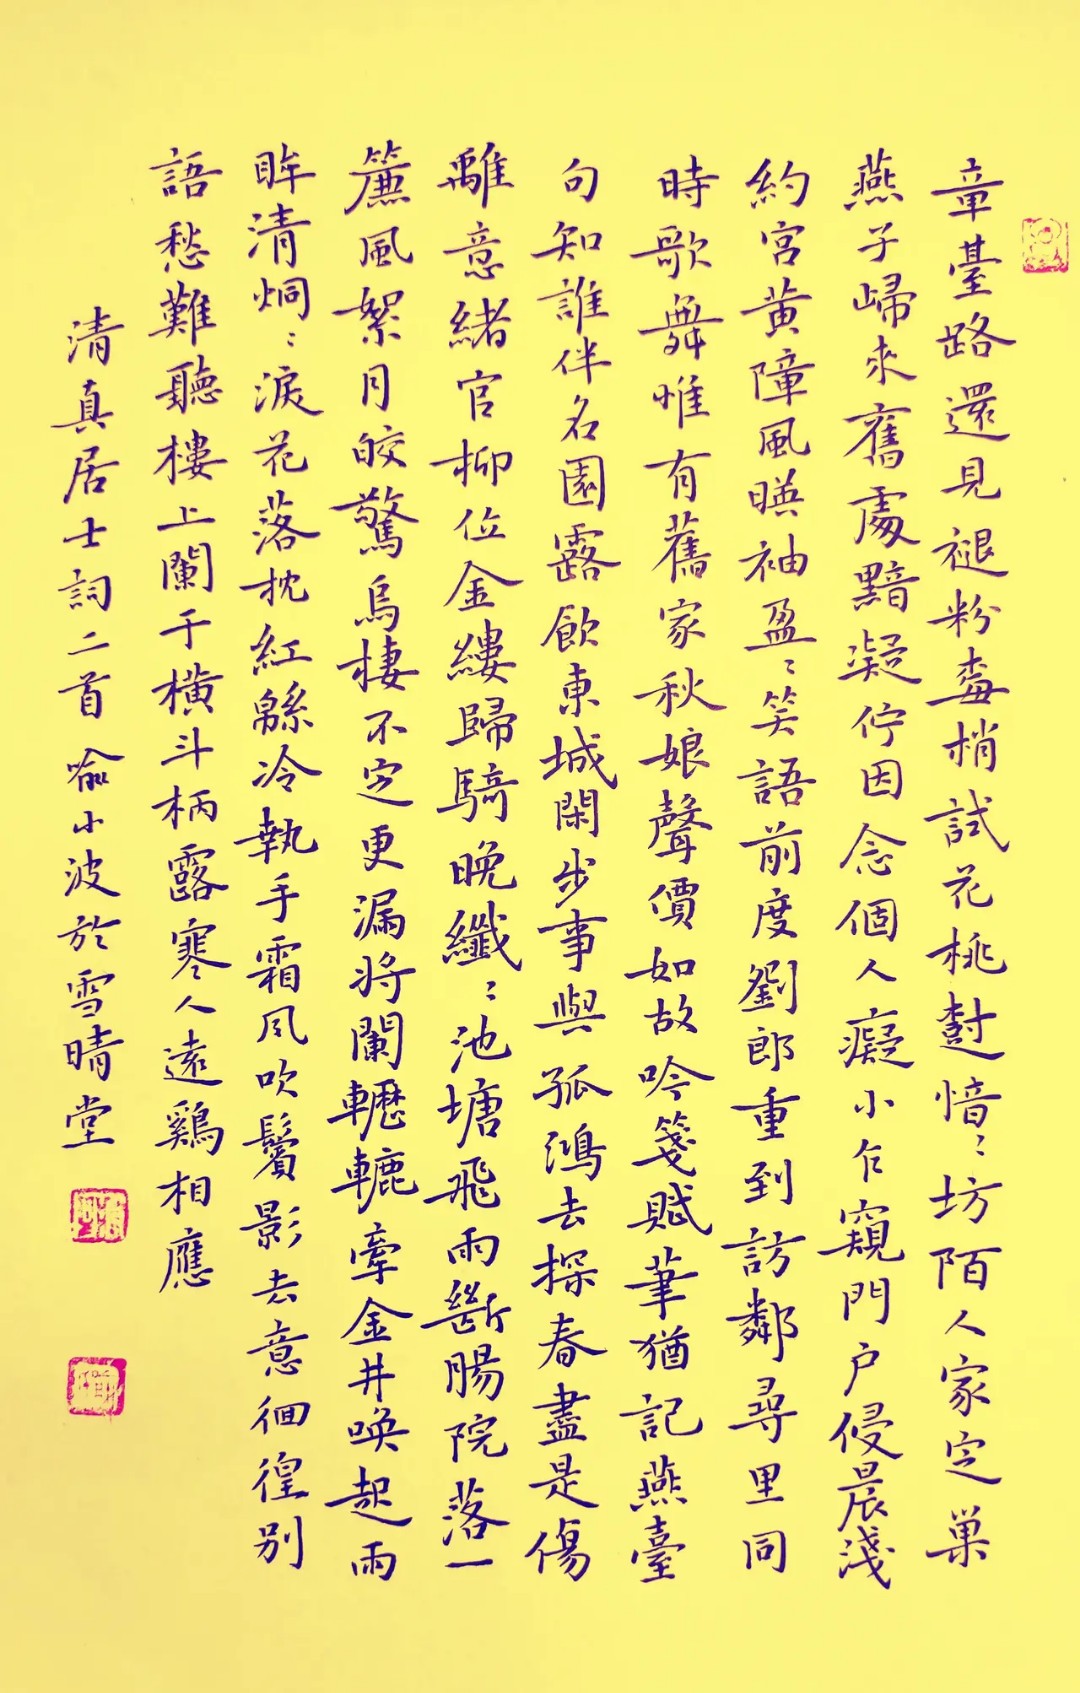 章臺路還見褪粉梅梢試花桃樹愔〻坊陌人家定巢
燕子歸來舊處黯凝佇因念個人癡小乍窺門戶侵晨淺
約宮黃障風暎袖盈〻笑語前度劉郎重到訪鄰尋里同
時歌舞惟有舊家秋娘聲價如故吟箋賦筆猶記燕臺
句知誰伴名園露飲東城閑步事與孤鴻去探春盡是傷
離意緒官柳位金縷歸騎晚纖〻池塘飛雨斷腸院落一
簾風絮月皎驚烏棲不定更漏將闌轣轆牽金井喚起兩
眸清炯〻淚花落枕紅緜冷執手霜風吹鬢影去意徊徨別
語愁難聽樓上闌干橫斗柄露寒人遠鷄相應
清真居士詞二首喻小波於雪晴堂